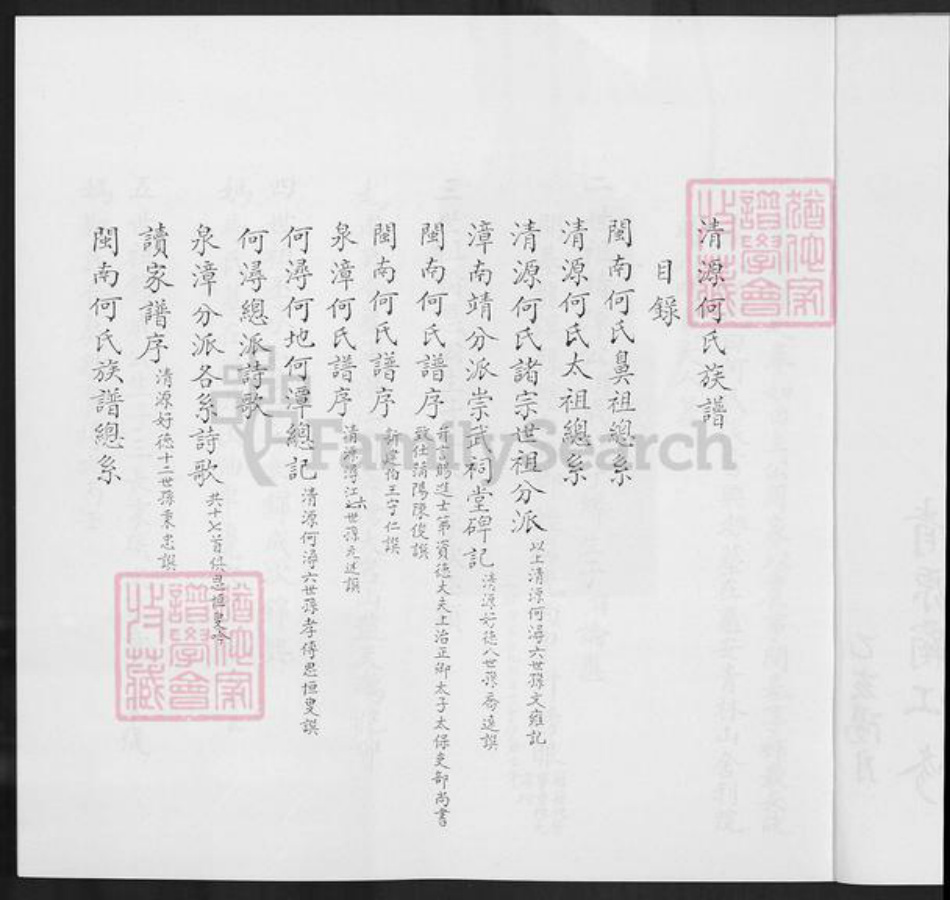 清源何氏族譜
目錄
閩南何氏鼻祖總系
清源何氏太祖總系
清源何氏諸宗世祖分派 以上清源何潯六世孫文雍記
漳南靖分派崇武祠堂碑記 清源好德八世孫喬遠譔
閩南何氏譜序 賜進士第資德大夫上治正卿太子太保吏部尚書
致仕莆陽陳俊譔
閩南何氏譜序 新建伯王守仁譔
泉漳何氏譜序 清源潯江六世孫元述譔
何潯何地何潭總記 清源何潯六世孫孝傳思恒叟譔
何潯總派詩歌
泉漳分派各系詩歌 共十七首 思恒叟吟
讀家譜序 清源好德十二世孫秉忠譔
閩南何氏族譜總系
猶他家譜學會收藏
猶他家譜學會收藏
FamilySearch